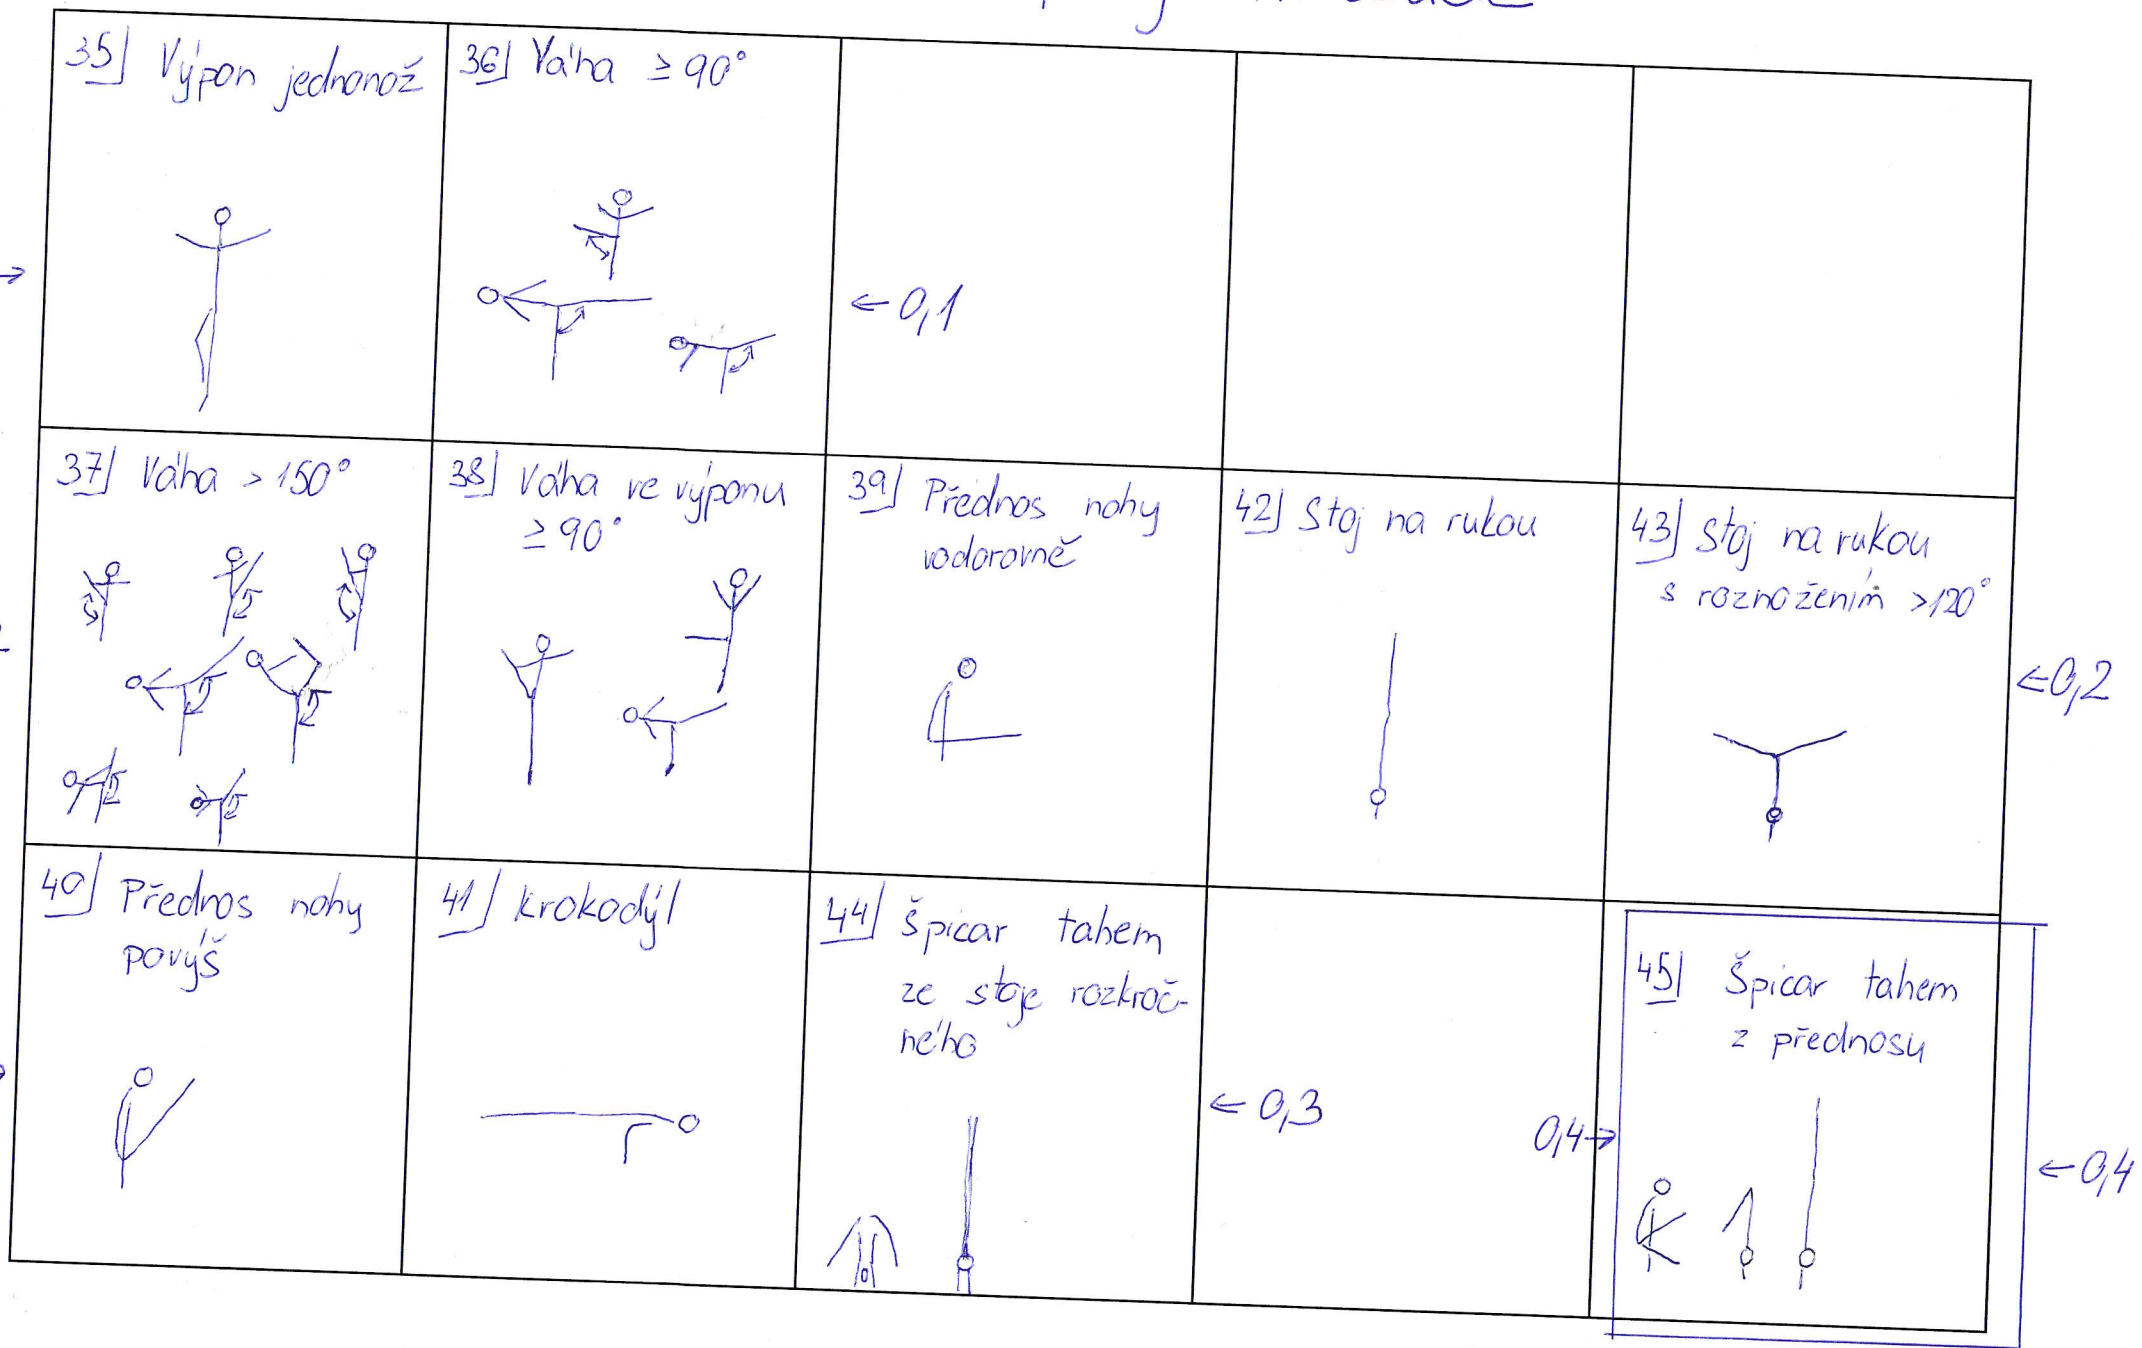 35) Výpon jednonož
36) Váha ≥ 90°
← 0,1
37) Váha > 150°
38) Váha ve výponu
≥ 90°
39) Přednos nohy
vodorovně
42) Stoj na rukou
43) Stoj na rukou
s roznožením >120°
←0,2
40) Přednos nohy
povýš
41) Krokodýl
44) Špicar tahem
ze stoje rozkroč-
ného
← 0,3
0,4→
45) Špicar tahem
z přednosu
←0,4